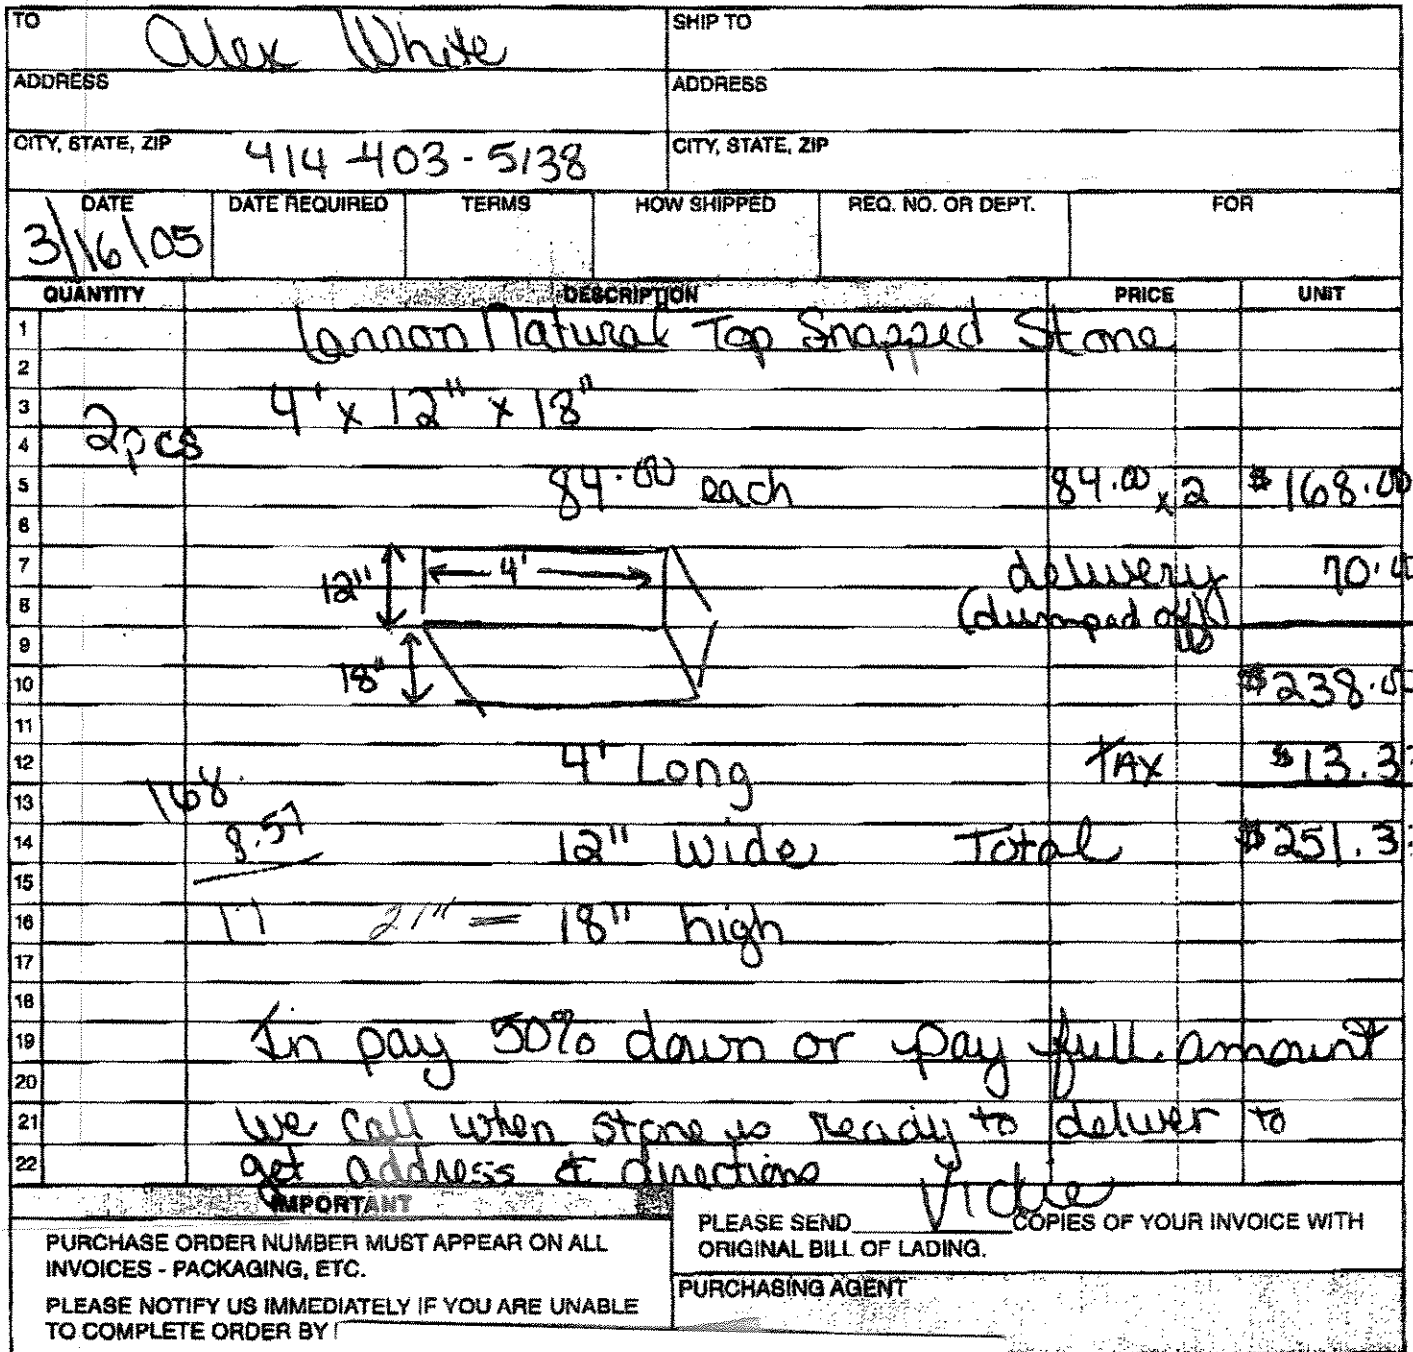 TO Alex White SHIP TO
ADDRESS ADDRESS
CITY, STATE, ZIP 414-403-5138 CITY, STATE, ZIP
DATE DATE REQUIRED TERMS HOW SHIPPED REQ. NO. OR DEPT. FOR
3/16/05
QUANTITY DESCRIPTION PRICE UNIT
1 Lannon Natural Top Snapped Stone
2
3 4' x 12" x 18"
4 2pcs
5 84.00 each 84.00 x 2 $168.00
6
7 12" 4' delivery 70.
8 (dumped off)
9
10 18" $238.0
11
12 4' Long TAX $13.3
13 168.
14 8.57 12" Wide Total $251.3
15
16 21" = 18" high
17
18
19 In pay 50% down or pay full amount
20
21 we call when stone is ready to deliver to
22 get address & directions Vickie
IMPORTANT
PURCHASE ORDER NUMBER MUST APPEAR ON ALL
INVOICES - PACKAGING, ETC.
PLEASE NOTIFY US IMMEDIATELY IF YOU ARE UNABLE
TO COMPLETE ORDER BY
PLEASE SEND COPIES OF YOUR INVOICE WITH
ORIGINAL BILL OF LADING.
PURCHASING AGENT